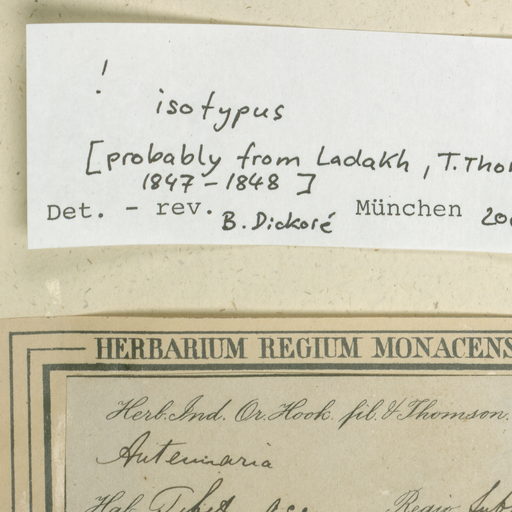 !
isotypus
[probably from Ladakh, T.Thom
1847-1848]
Det. - rev. B. Dickoré München 200
HERBARIUM REGIUM MONACENS
Herb. Ind. Or. Hook. fil. & Thomson.
Antennaria
Hab. Tibet occ. Regio